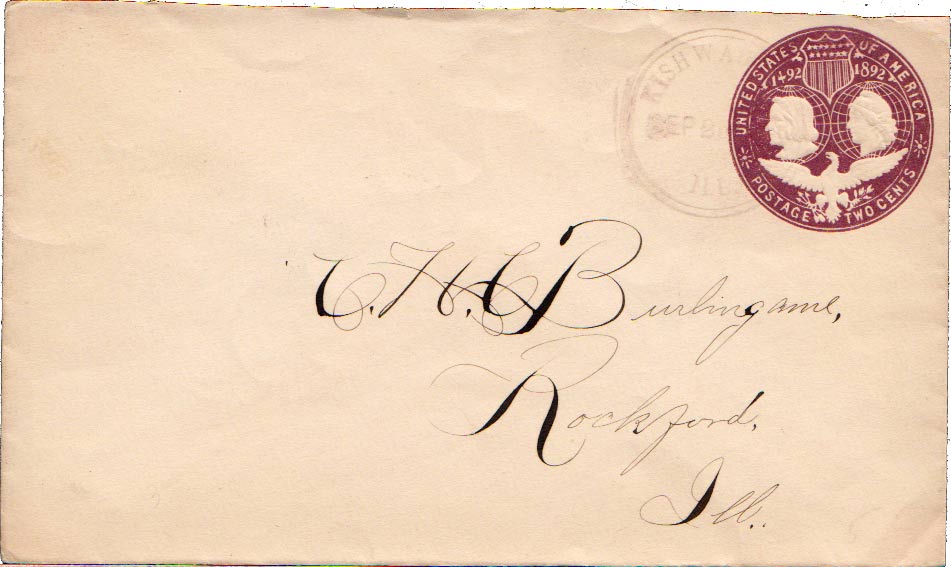 UNITED STATES OF AMERICA
1492 1892
POSTAGE TWO CENTS
KISHWA
SEP 2
ILL.
C. H. Burlingame,
Rockford,
Ill.